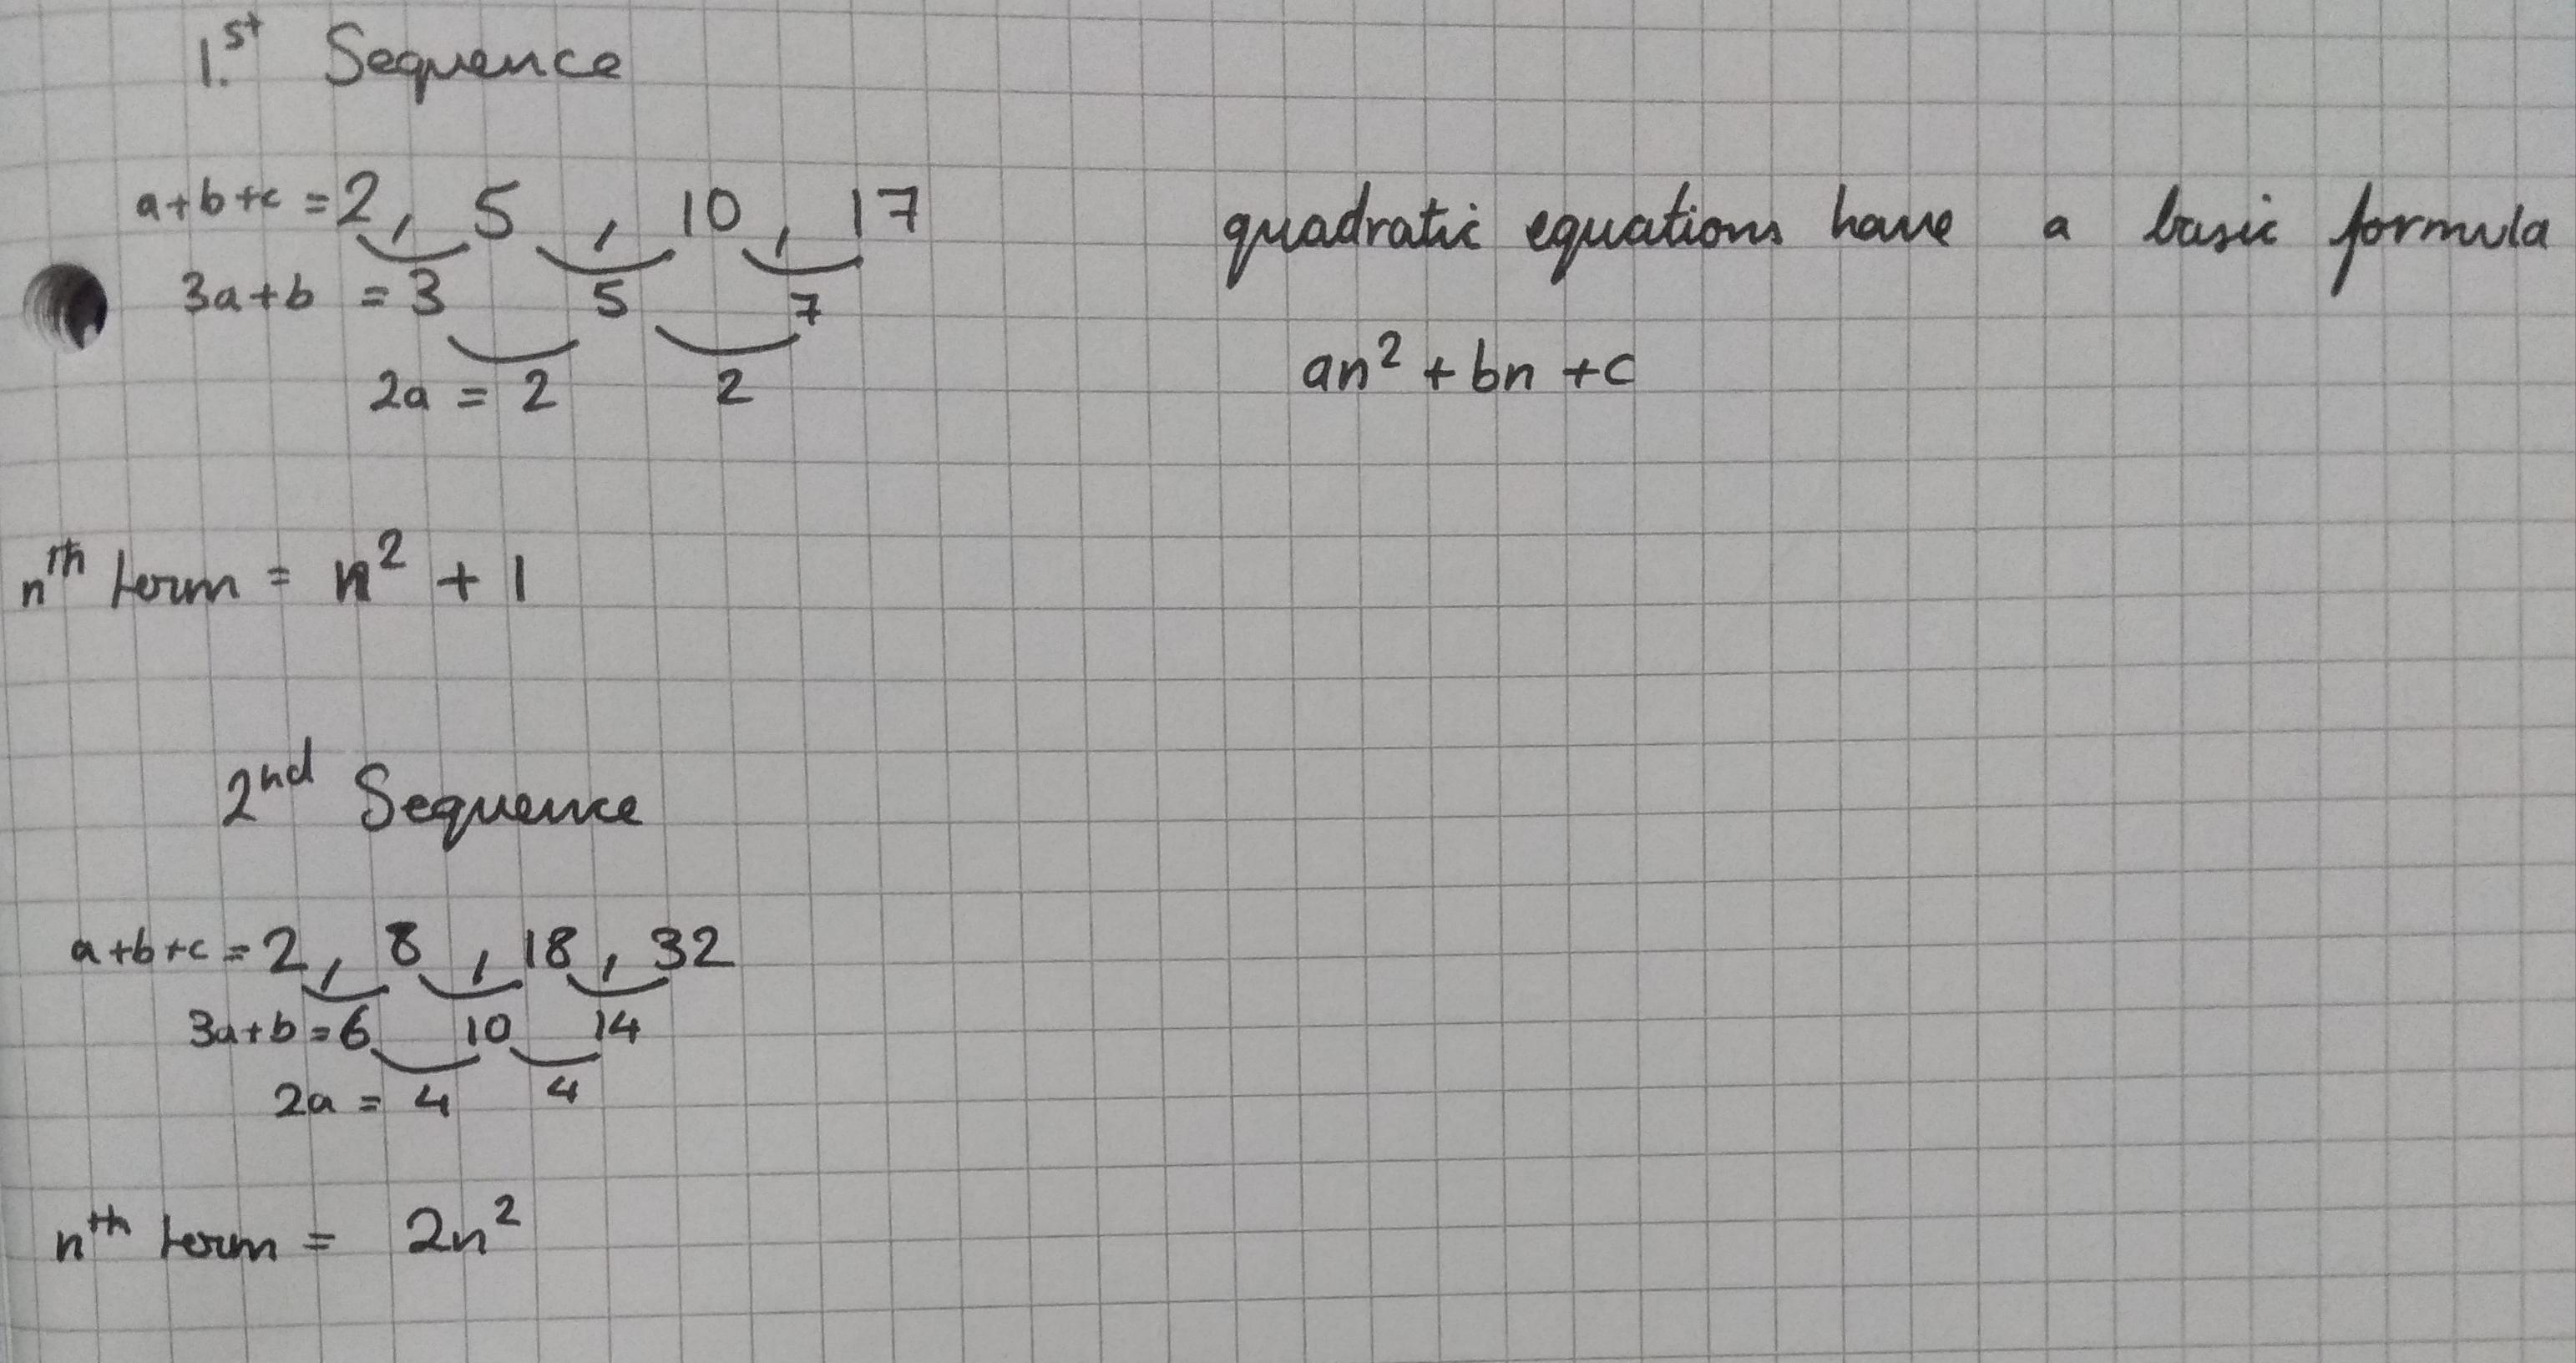 1.st Sequence
a+b+c = 2, 5, 10, 17
3a+b = 3 5 7
2a = 2 2
quadratic equations have a basic formula
an² + bn + c
nth term = n² + 1
2nd Sequence
a+b+c = 2, 8, 18, 32
3a+b = 6 10 14
2a = 4 4
nth term = 2n²